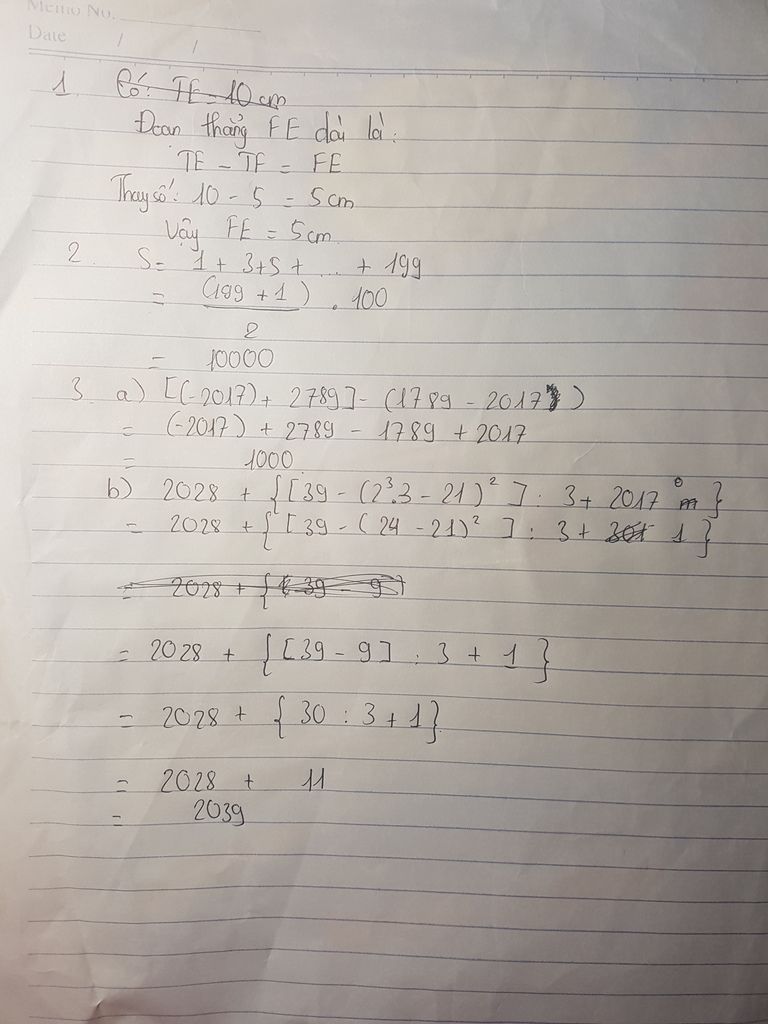 Memo No.
Date / /
1 Có: TE = 10 cm
Đoạn thẳng FE dài là:
TE - TF = FE
Thay số: 10 - 5 = 5 cm
Vậy FE = 5 cm
2. S = 1 + 3 + 5 + ... + 199
= (199 + 1) . 100
2
= 10000
3 a) [(-2017) + 2789] - (1789 - 2017)
= (-2017) + 2789 - 1789 + 2017
= 1000
b) 2028 + {[39 - (2³.3 - 21)²] : 3 + 2017⁰}
= 2028 + {[39 - (24 - 21)²] : 3 + 1}
= 2028 + {(39 - 9)
= 2028 + {[39 - 9] : 3 + 1}
= 2028 + {30 : 3 + 1}
= 2028 + 11
= 2039